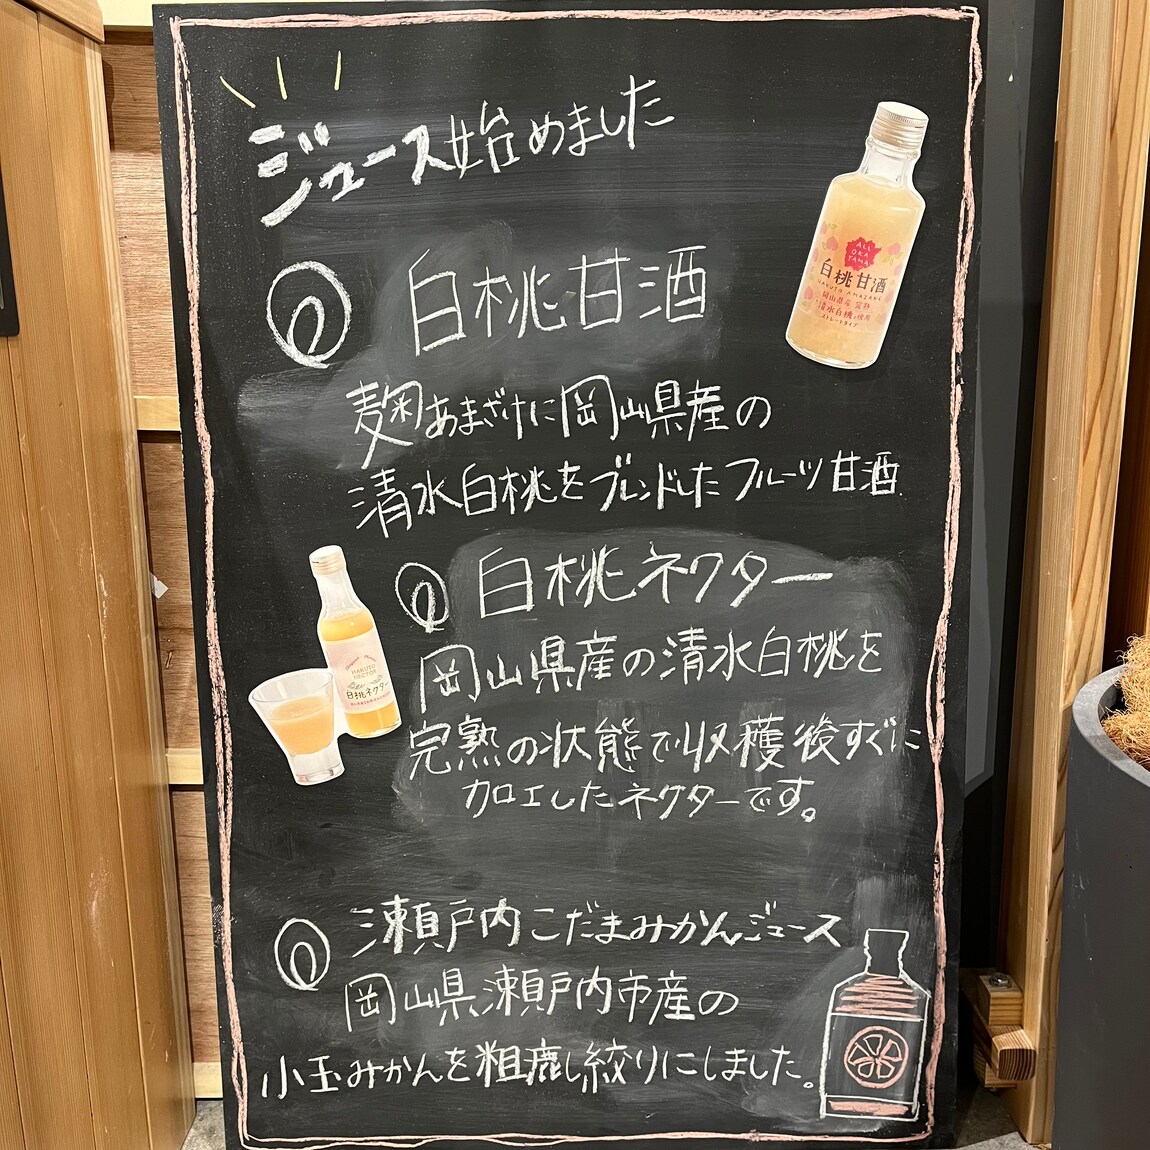 ジュース始めました
の 白桃甘酒
麹あまざけに岡山県産の
清水白桃をブレンドしたフルーツ甘酒.
の 白桃ネクター
岡山県産の清水白桃を
完熟の状態で収穫後すぐに
加工したネクターです。
の 瀬戸内こだまみかんジュース
岡山県瀬戸内市産の
小玉みかんを粗鹿し絞りにしました。
ALL
OKA
YAMA
白桃甘酒
HAKUTO AMAZAKE
岡山県産
清水白桃使用
ストレートタイプ
HAKUTO
NECTOR
白桃ネクター